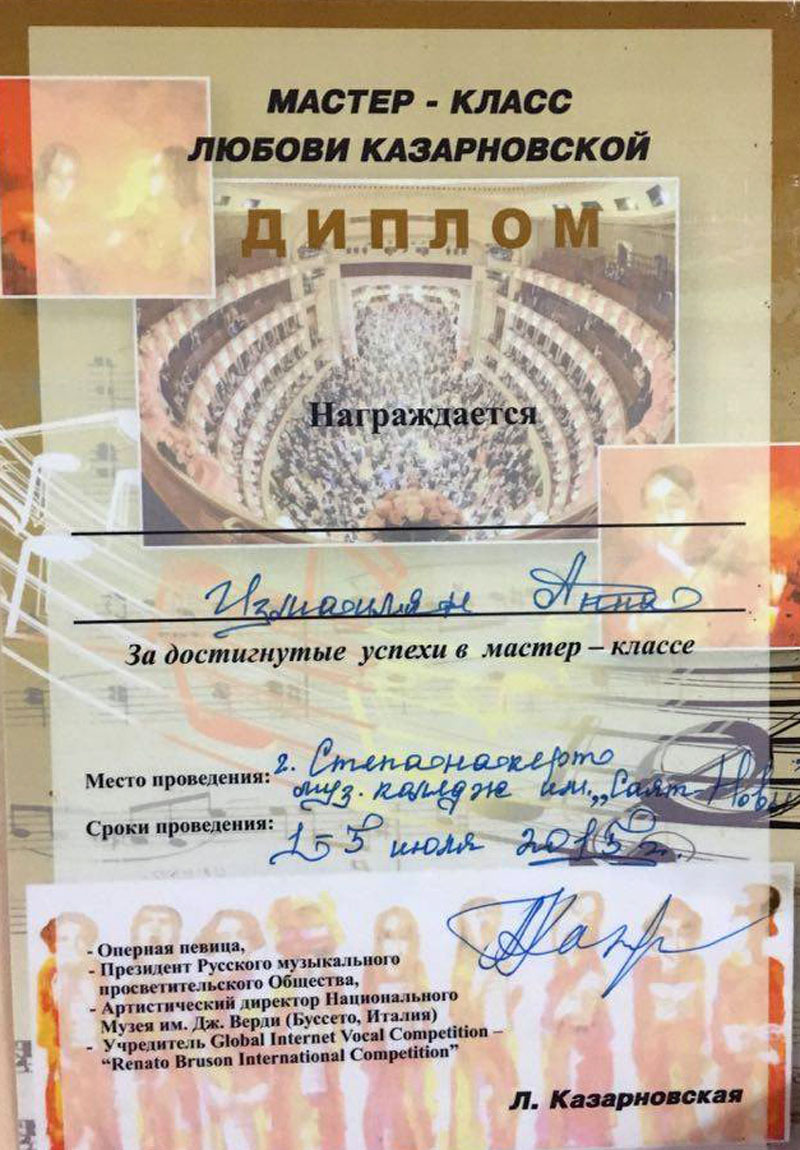 МАСТЕР - КЛАСС
ЛЮБОВИ КАЗАРНОВСКОЙ
ДИПЛОМ
Награждается
Измаилян Анна
За достигнутые успехи в мастер – классе
Место проведения: г. Степанакерт
муз. каледж им. „Саят-Нов
Сроки проведения: 1-5 июля 2015 г.
- Оперная певица,
- Президент Русского музыкального
просветительского Общества,
- Артистический директор Национального
Музея им. Дж. Верди (Буссето, Италия)
- Учредитель Global Internet Vocal Competition –
“Renato Bruson International Competition”
Л. Казарновская